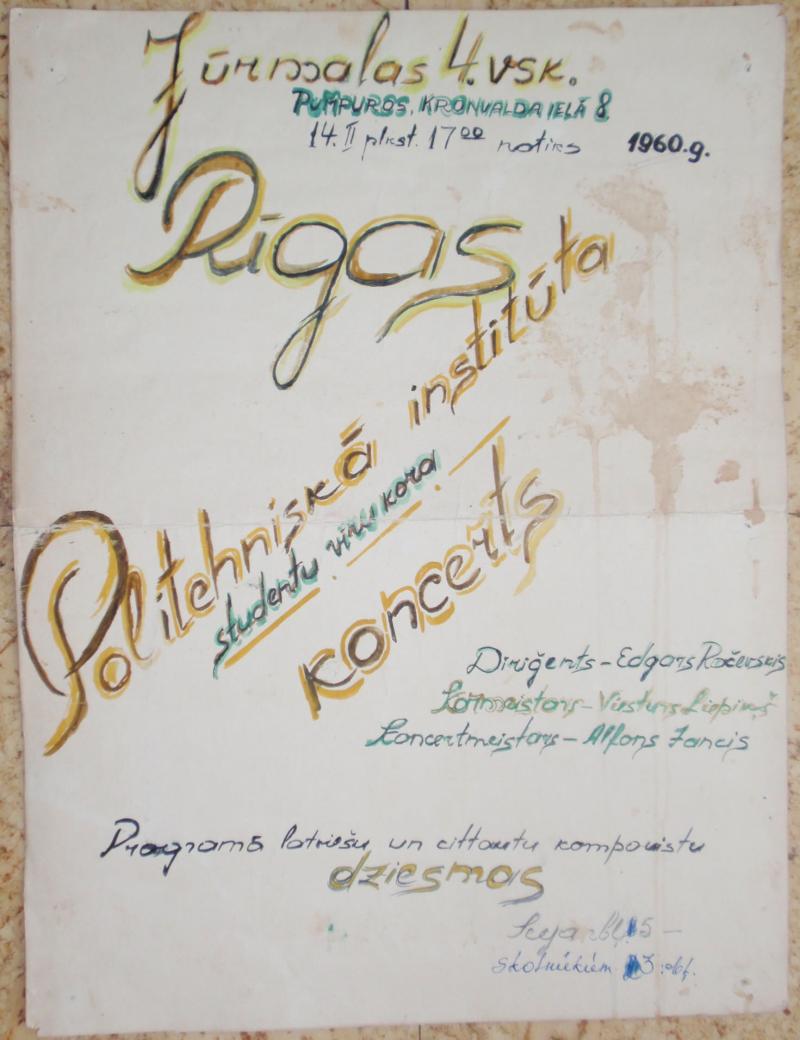 Jūrmalas 4. vsk.
Pumpuros, Kronvalda ielā 8
14. II plkst. 17⁰⁰ notiks 1960.g.
Rīgas
Politehniskā institūta
studentu vīru kora
koncerts
Diriģents - Edgars Račevskis
Kormeistars - Viesturs Liepiņš
Koncertmeistars - Alfons Jancis
Programā latviešu un cittautu komponistu
dziesmas
Ieeja 5 -
skolniekiem 3